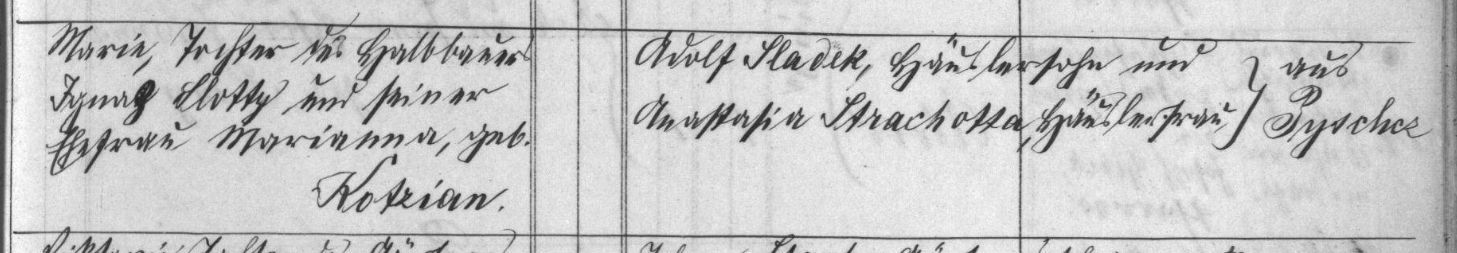 Marie, Tochter des Halbbauers
Ignatz Slotty und seiner
Ehefrau Marianna, geb.
Kotzian.
Adolf Sladek, Häuslersohn und
Anastasia Strachotta, Häuslerfrau } aus
Pyschcz